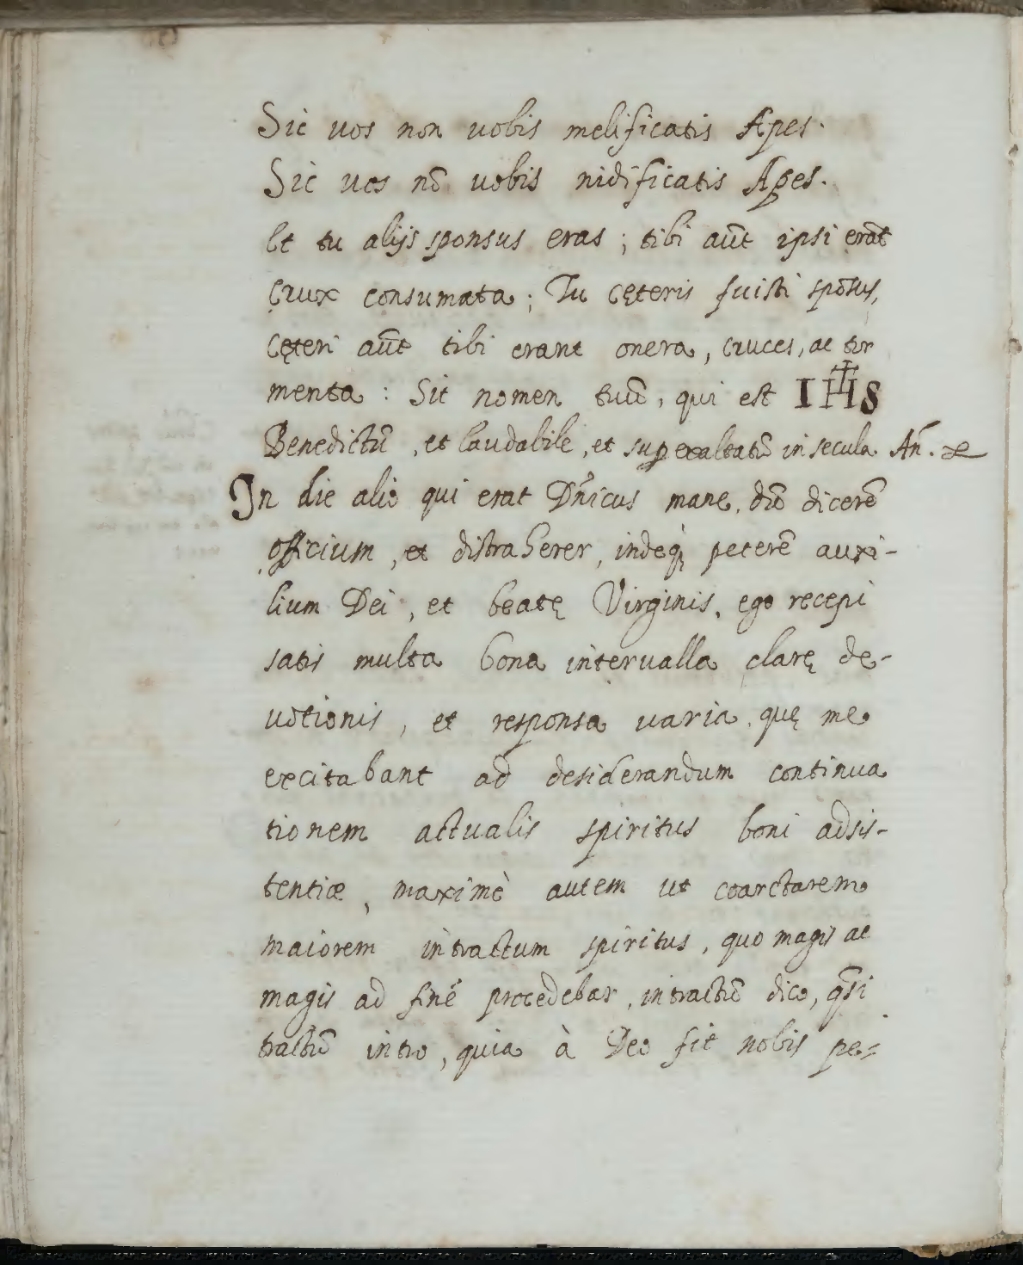 Sic uos non uobis melificatis Apes.
Sic uos nō uobis nidificatis Apes.
Et tu alijs sponsus eras; tibi aūt ipsi erāt
Crux consumata; Tu cęteris fuisti spōsus,
Cęteri aūt tibi erant onera, cruces, ac tor
menta: Sit nomen tuū, qui est IHS
Benedictū, et laudabile, et superexaltatū in secula. Añ.
In die alio qui erat Dn̄icus mane, dū dicerē
officium, et distraherer, indeq́; peterē auxi-
lium Dei, et beatę Virginis, ego recepi
satis multa bona interualla clarę de-
uotionis, et responsa uaria, quę me
excitabant ad desiderandum continua
tionem actualis spiritus boni adsis-
tentiæ, maximè autem ut coarctarem
maiorem intractum spiritus, quo magis ac
magis ad finē procedebar, intractū dico, q̄si
tractū intro, quia à Deo fit nobis pe-